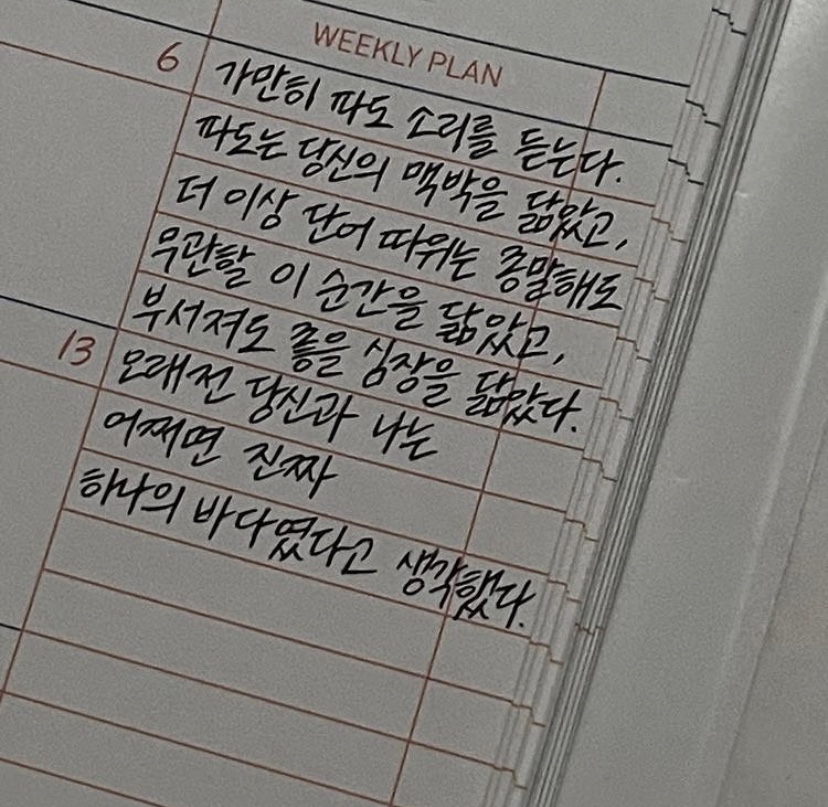 WEEKLY PLAN
6
가만히 파도 소리를 듣는다.
파도는 당신의 맥박을 닮았고,
더 이상 단어 따위는 종말해도
무관할 이 순간을 닮았고,
부서져도 좋을 심장을 닮았다.
13
오래전 당신과 나는
어쩌면 진짜
하나의 바다였다고 생각했다.